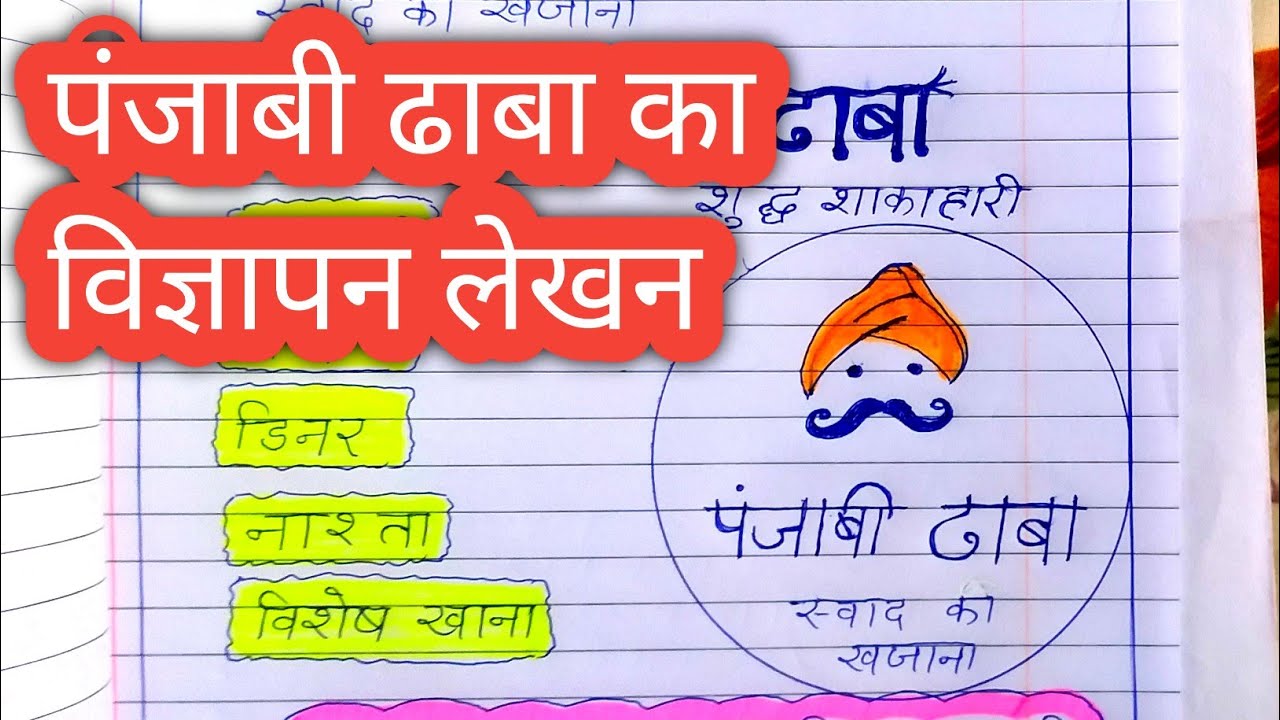 स्वाद का खजाना
पंजाबी ढाबा का
विज्ञापन लेखन
ढाबा
शुद्ध शाकाहारी
डिनर
नाश्ता
विशेष खाना
पंजाबी ढाबा
स्वाद का
खजाना